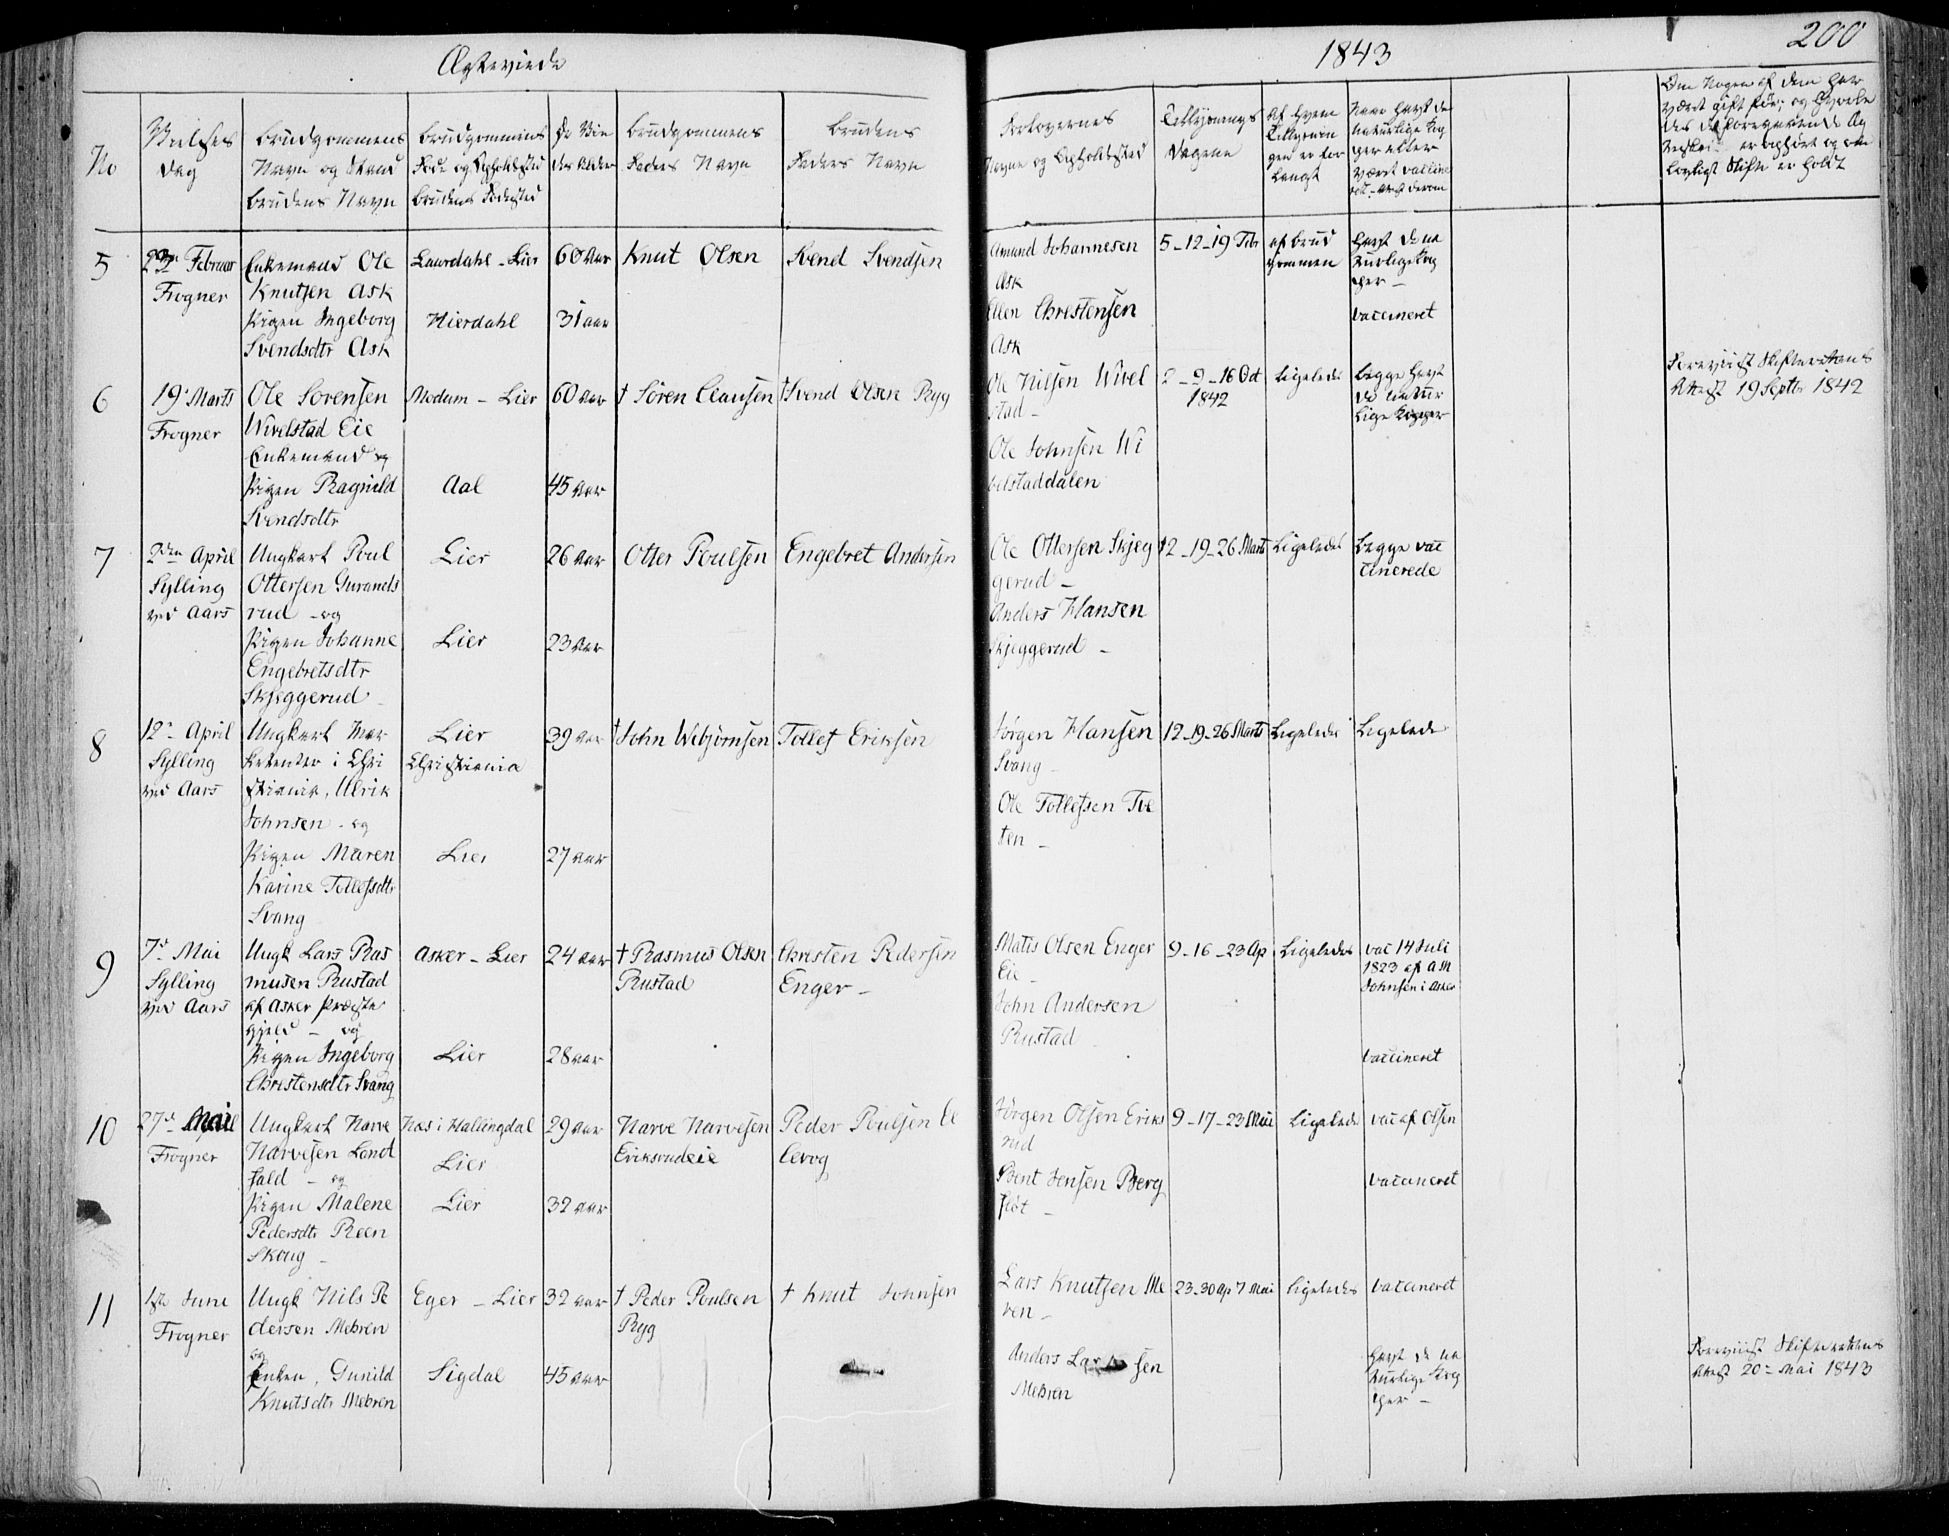 Ægteviede
1843
200
No
Vielses
Dag
Brudgommens
Navn og Stand
Brudens Navn
Brudgommens
Føde og Opholdssted
Brudens Fødested
De Vie
des Alder
Brudgommens
Faders Navn
Brudens
Faders Navn
Forlovernes
Navne og Opholdssted
Tillysnings
Dagene
Af hvem
Tillysnin
gen er for
langt
Naar havt de
naturlige Kop
per eller
været vaccine
ret
Om Nogen af dem har
været gift før, og hvorle
des det foregaaende Æg
teskab er ophørt og om
lovligt Skifte er holdt
5
Februar
Frogner
Enkemand Ole
Knutsen Ask
Pigen Ingeborg
Svendsdtr Ask
Laurdahl - Lier
Hierdahl
60 Aar
31 aar
Knut Olsen
Svend Svendsen
Amund Johannesen
Ask
Ellen Christensen
Ask
5-12-19 Febr
af Brud
gommen
havt de na
turlige Kop
per -
vaccineret
6
19 Marts
Frogner
Ole Sorensen
Wivelstad Eie
Enkemand og
Pigen Ragnild
Svendsdtr
Modum - Lier
Aal
60 Aar
45 Aar
† Sören Clausen
† Svend Olsen Ryg
Ole Nilsen Wivel
stad -
Ole Johnsen Wi
velstaddalen
2-9-16 Oct
1842
Ligeledes
Begge havt
de natur
lige Kopper
Foreviist Skifterettens
Attest 19 Septbr 1842
7
2den April
Sylling
ved Aars
Ungkarl Poul
Ottersen Gurands
rud - og
Pigen Johanne
Engebretsdtr
Skjeggerud
Lier
Lier
26 Aar
23 Aar
Otter Poulsen
Engebret Andersen
Ole Ottersen Skjeg
gerud -
Anders Hansen
Skjeggerud -
12-19-26 Marts
Ligeledes
Begge vac
cinerede
8
12 April
Sylling
ved Aars
Ungkarl Mar
ketenter i Chri
stiania, Ulrik
Johnsen - og
Pigen Maren
Karine Tollefsdtr
Svang
Lier
Christiania
Lier
39 aar
27 aar
† John Webjørnsen
Tollef Eriksen
Jørgen Hansen
Svang -
Ole Tollefsen Tve
ten -
12-19-26 Marts
Ligeledes
Ligelede
9
7d Mai
Sylling
ved Aars
Ungk Lars Ras
musen Rustad
af Asker Præste
gjeld - og
Pigen Ingeborg
Christensdtr Svang
Asker - Lier
Lier
24 aar
28 aar
† Rasmus Olsen
Rustad
Christen Pedersen
Enger -
Matis Olsen Enger
Eie -
John Andersen
Rustad
9-16-23 Ap
Ligeledes
vac 14 Juli
1823 af Ask
Johnsen i Asker
vaccineret
10
27d Mai
Frogner
Ungkarl Narve
Narvesen Londt
fald - og
Pigen Malene
Pedersdtr Reen
skoug -
Næs i Hallingdal
Lier
Lier
29 aar
32 aar
Narve Narvesen
Eriksrudeie
Peder Poulsen El
levog
Jørgen Olsen Eriks
rud
Bent Jensen Berg
fløt -
9-17-23 Mai
Ligeledes
vac af Olsen
vaccineret
11
1ste Juni
Frogner
Ungk Nils Pe
dersen Mebren
og
Enken, Gunild
Knutsdtr Mebren
Eger - Lier
Sigdal
32 aar
45 aar
† Peder Poulsen
Ryg
† Knut Johnsen
Lars Knutsen Me
ren -
Anders Larsen
Mebren
23-30 Ap 7 Mai
Ligeledes
vaccineret
havt de na
turlige Kop
per -
Foreviist Skifterettens
Attest 20 Mai 1843